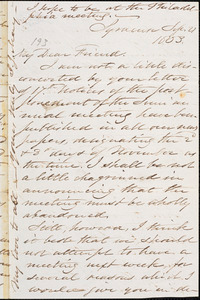 I hope to be at the Philadel.
phia meeting.
Syracuse Sep. 21
193
1853
My dear Friend.
I am not a little dis
concerted by your letter
of 17th. Notices of the post
ponement of the Semi an
nual meeting have been
published in all our news
papers, designating the
& days of November as
the time. I shall be not
a little chagrined in
announcing that the
meeting must be wholly
abandoned.
Still, however, I think
it best that we should
not attempt to have a
meeting next week, for
several reasons which I
would give you in de